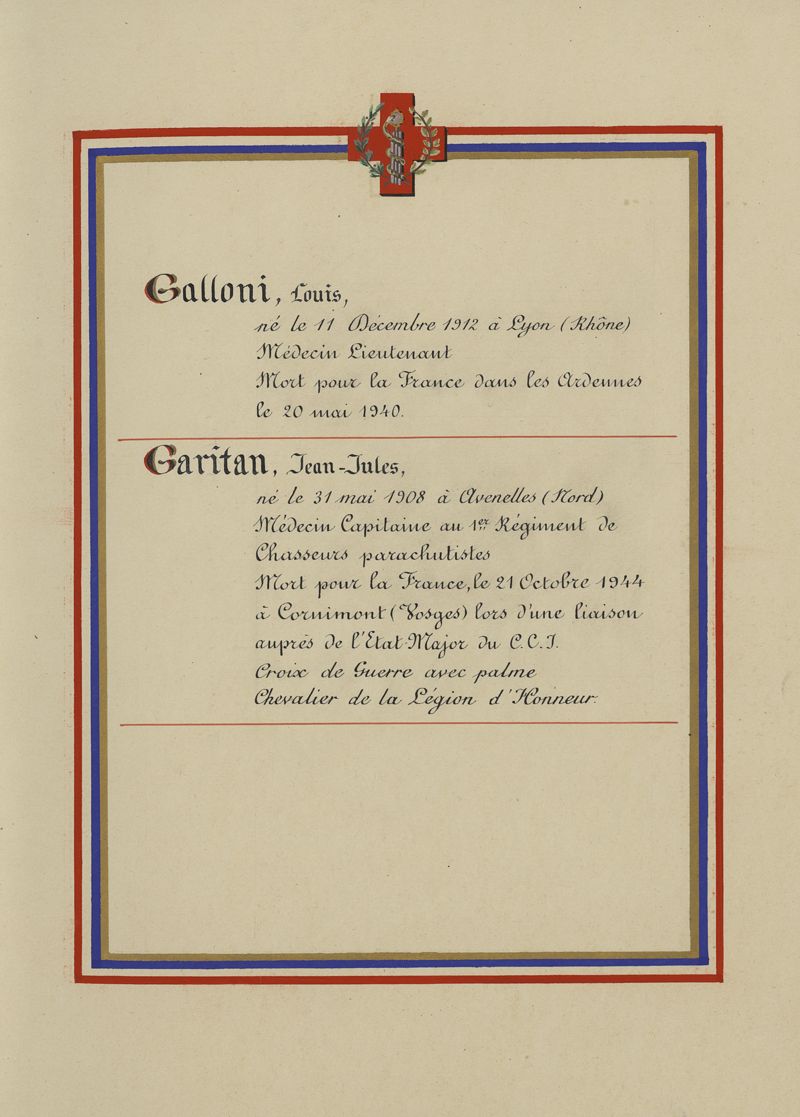 Galloni, Louis,
né le 11 Décembre 1912 à Lyon (Rhône)
Médecin Lieutenant
Mort pour la France dans les Ardennes
le 20 mai 1940.
Garitan, Jean-Jules,
né le 31 mai 1908 à Avenelles (Nord)
Médecin Capitaine au 1er Régiment de
Chasseurs parachutistes
Mort pour la France, le 21 Octobre 1944
à Cornimont (Vosges) lors d'une liaison
auprés de l'Etat-Major du C.C.I.
Croix de Guerre avec palme
Chevalier de la Légion d'Honneur.